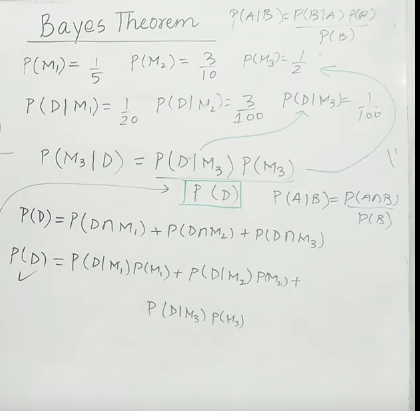 Bayes Theorem
P(A|B) = P(B|A) P(A) / P(B)
P(M₁) = 1/5 P(M₂) = 3/10 P(M₃) = 1/2
P(D|M₁) = 1/20 P(D|M₂) = 3/100 P(D|M₃) = 1/100
P(M₃|D) = P(D|M₃) P(M₃) / P(D)
P(A|B) = P(A∩B) / P(B)
P(D) = P(D∩M₁) + P(D∩M₂) + P(D∩M₃)
P(D) = P(D|M₁) P(M₁) + P(D|M₂) P(M₂) +
P(D|M₃) P(M₃)